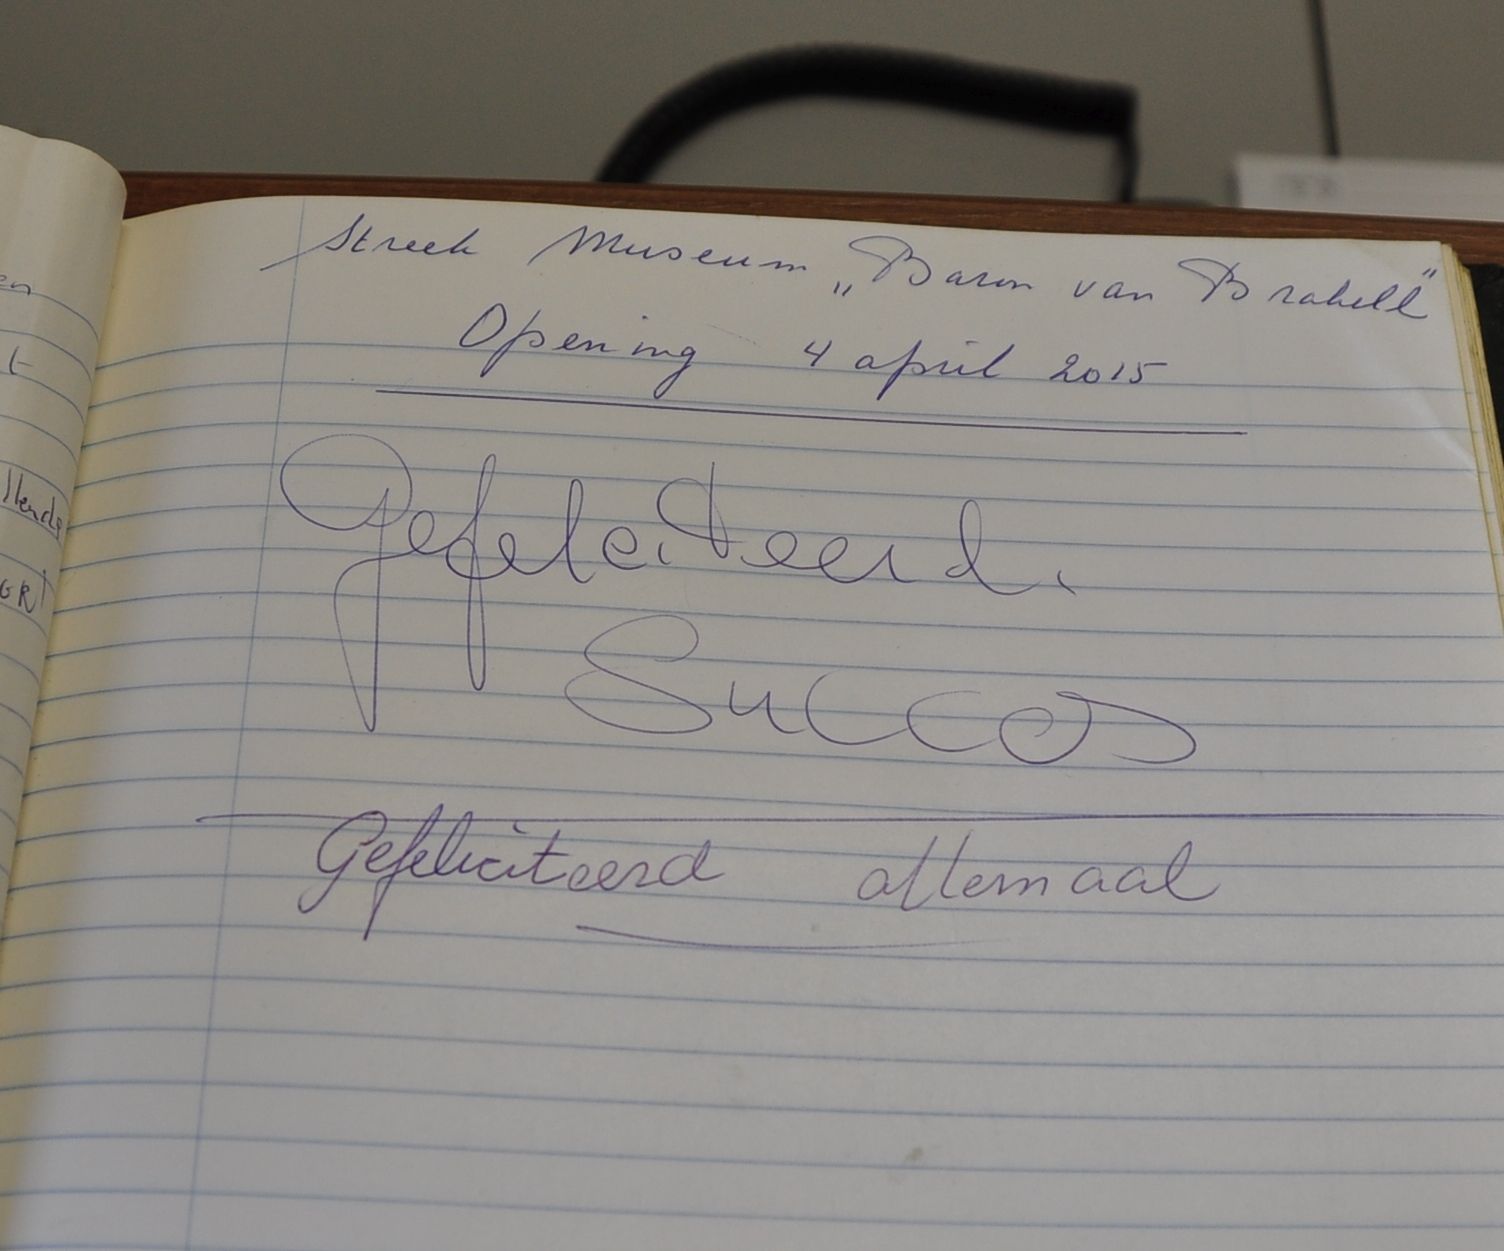 en
t
Streek Museum „Baron van Brakell"
Opening 4 april 2015
Gefeleciteerd.
Succes
Gefeliciteerd allemaal